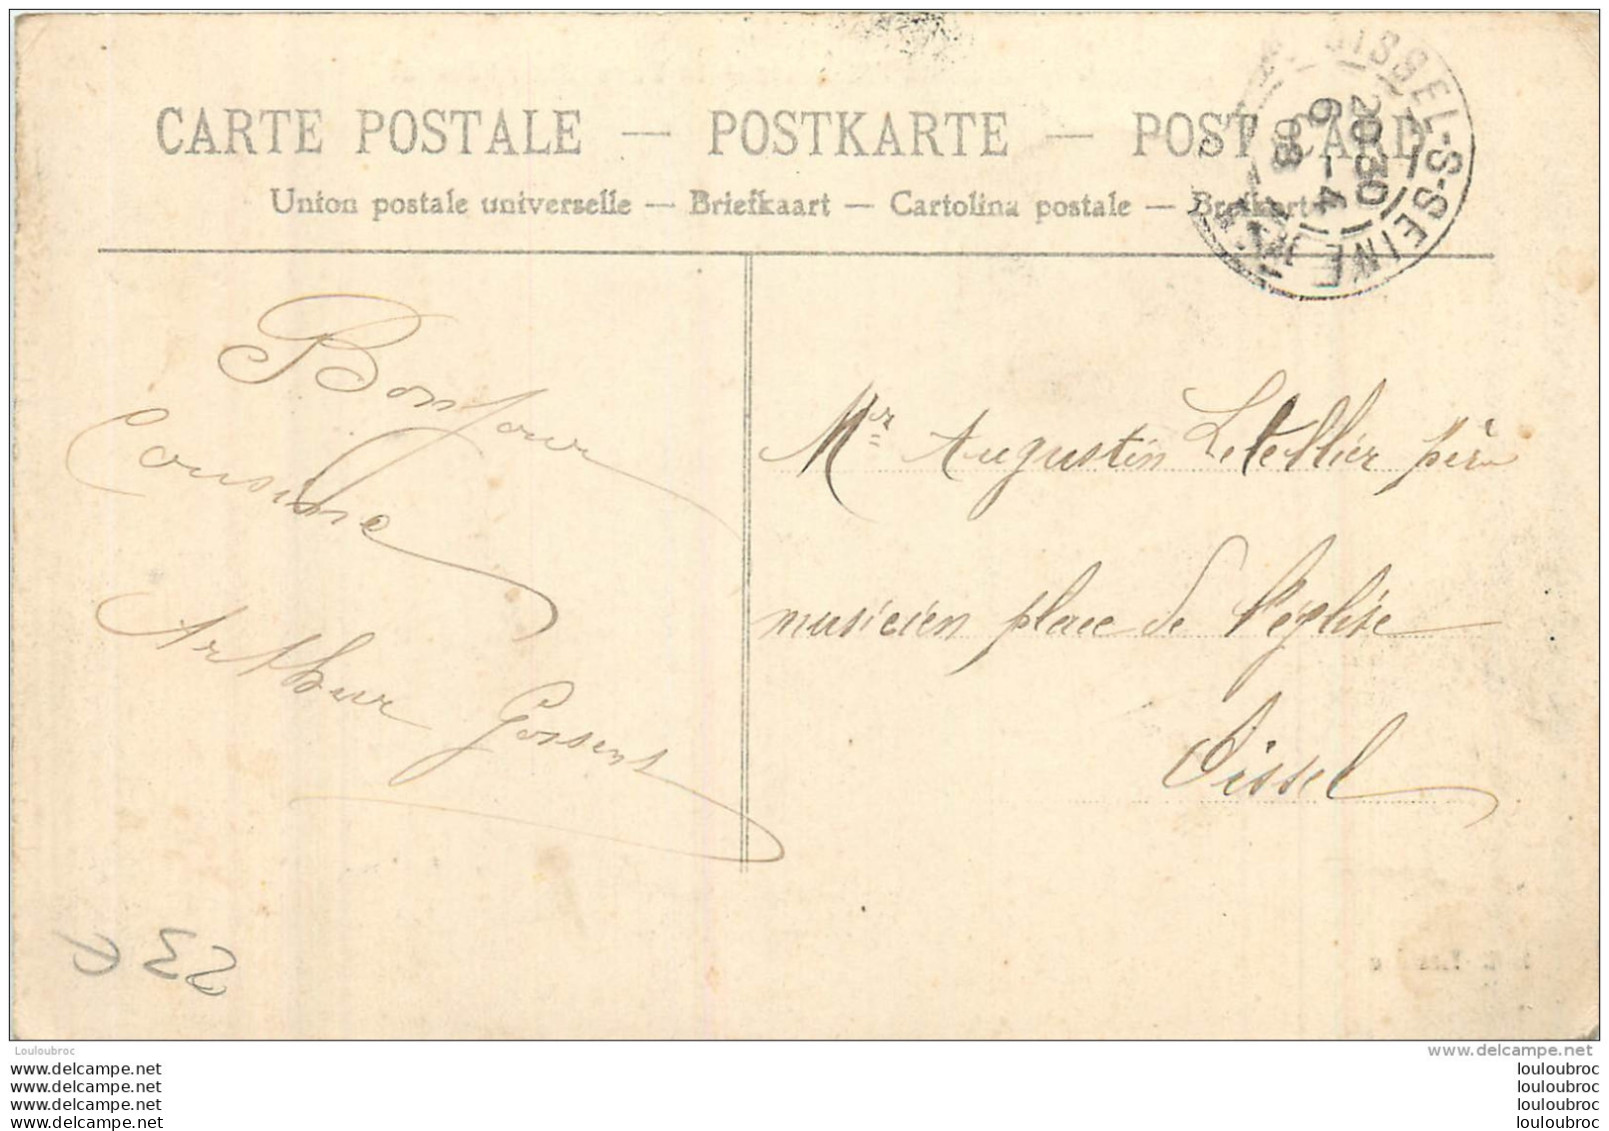 CARTE POSTALE — POSTKARTE — POST CARD
Union postale universelle — Briefkaart — Cartolina postale —
OISSEL-S-SEINE
20 30
6 -4
08
Bonjour
Cousine
Arthur Gossent
Mr Augustin Letellier père
musicien place de l'église
Oissel
Louloubroc
www.delcampe.net
www.delcampe.net
www.delcampe.net
www.delcampe.net
www.delcampe.net
louloubroc
louloubroc
louloubroc
louloubroc